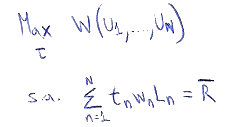 Max W(U1,...,UN)
τ
s.a. N∑n=1 tn wn Ln = R̅